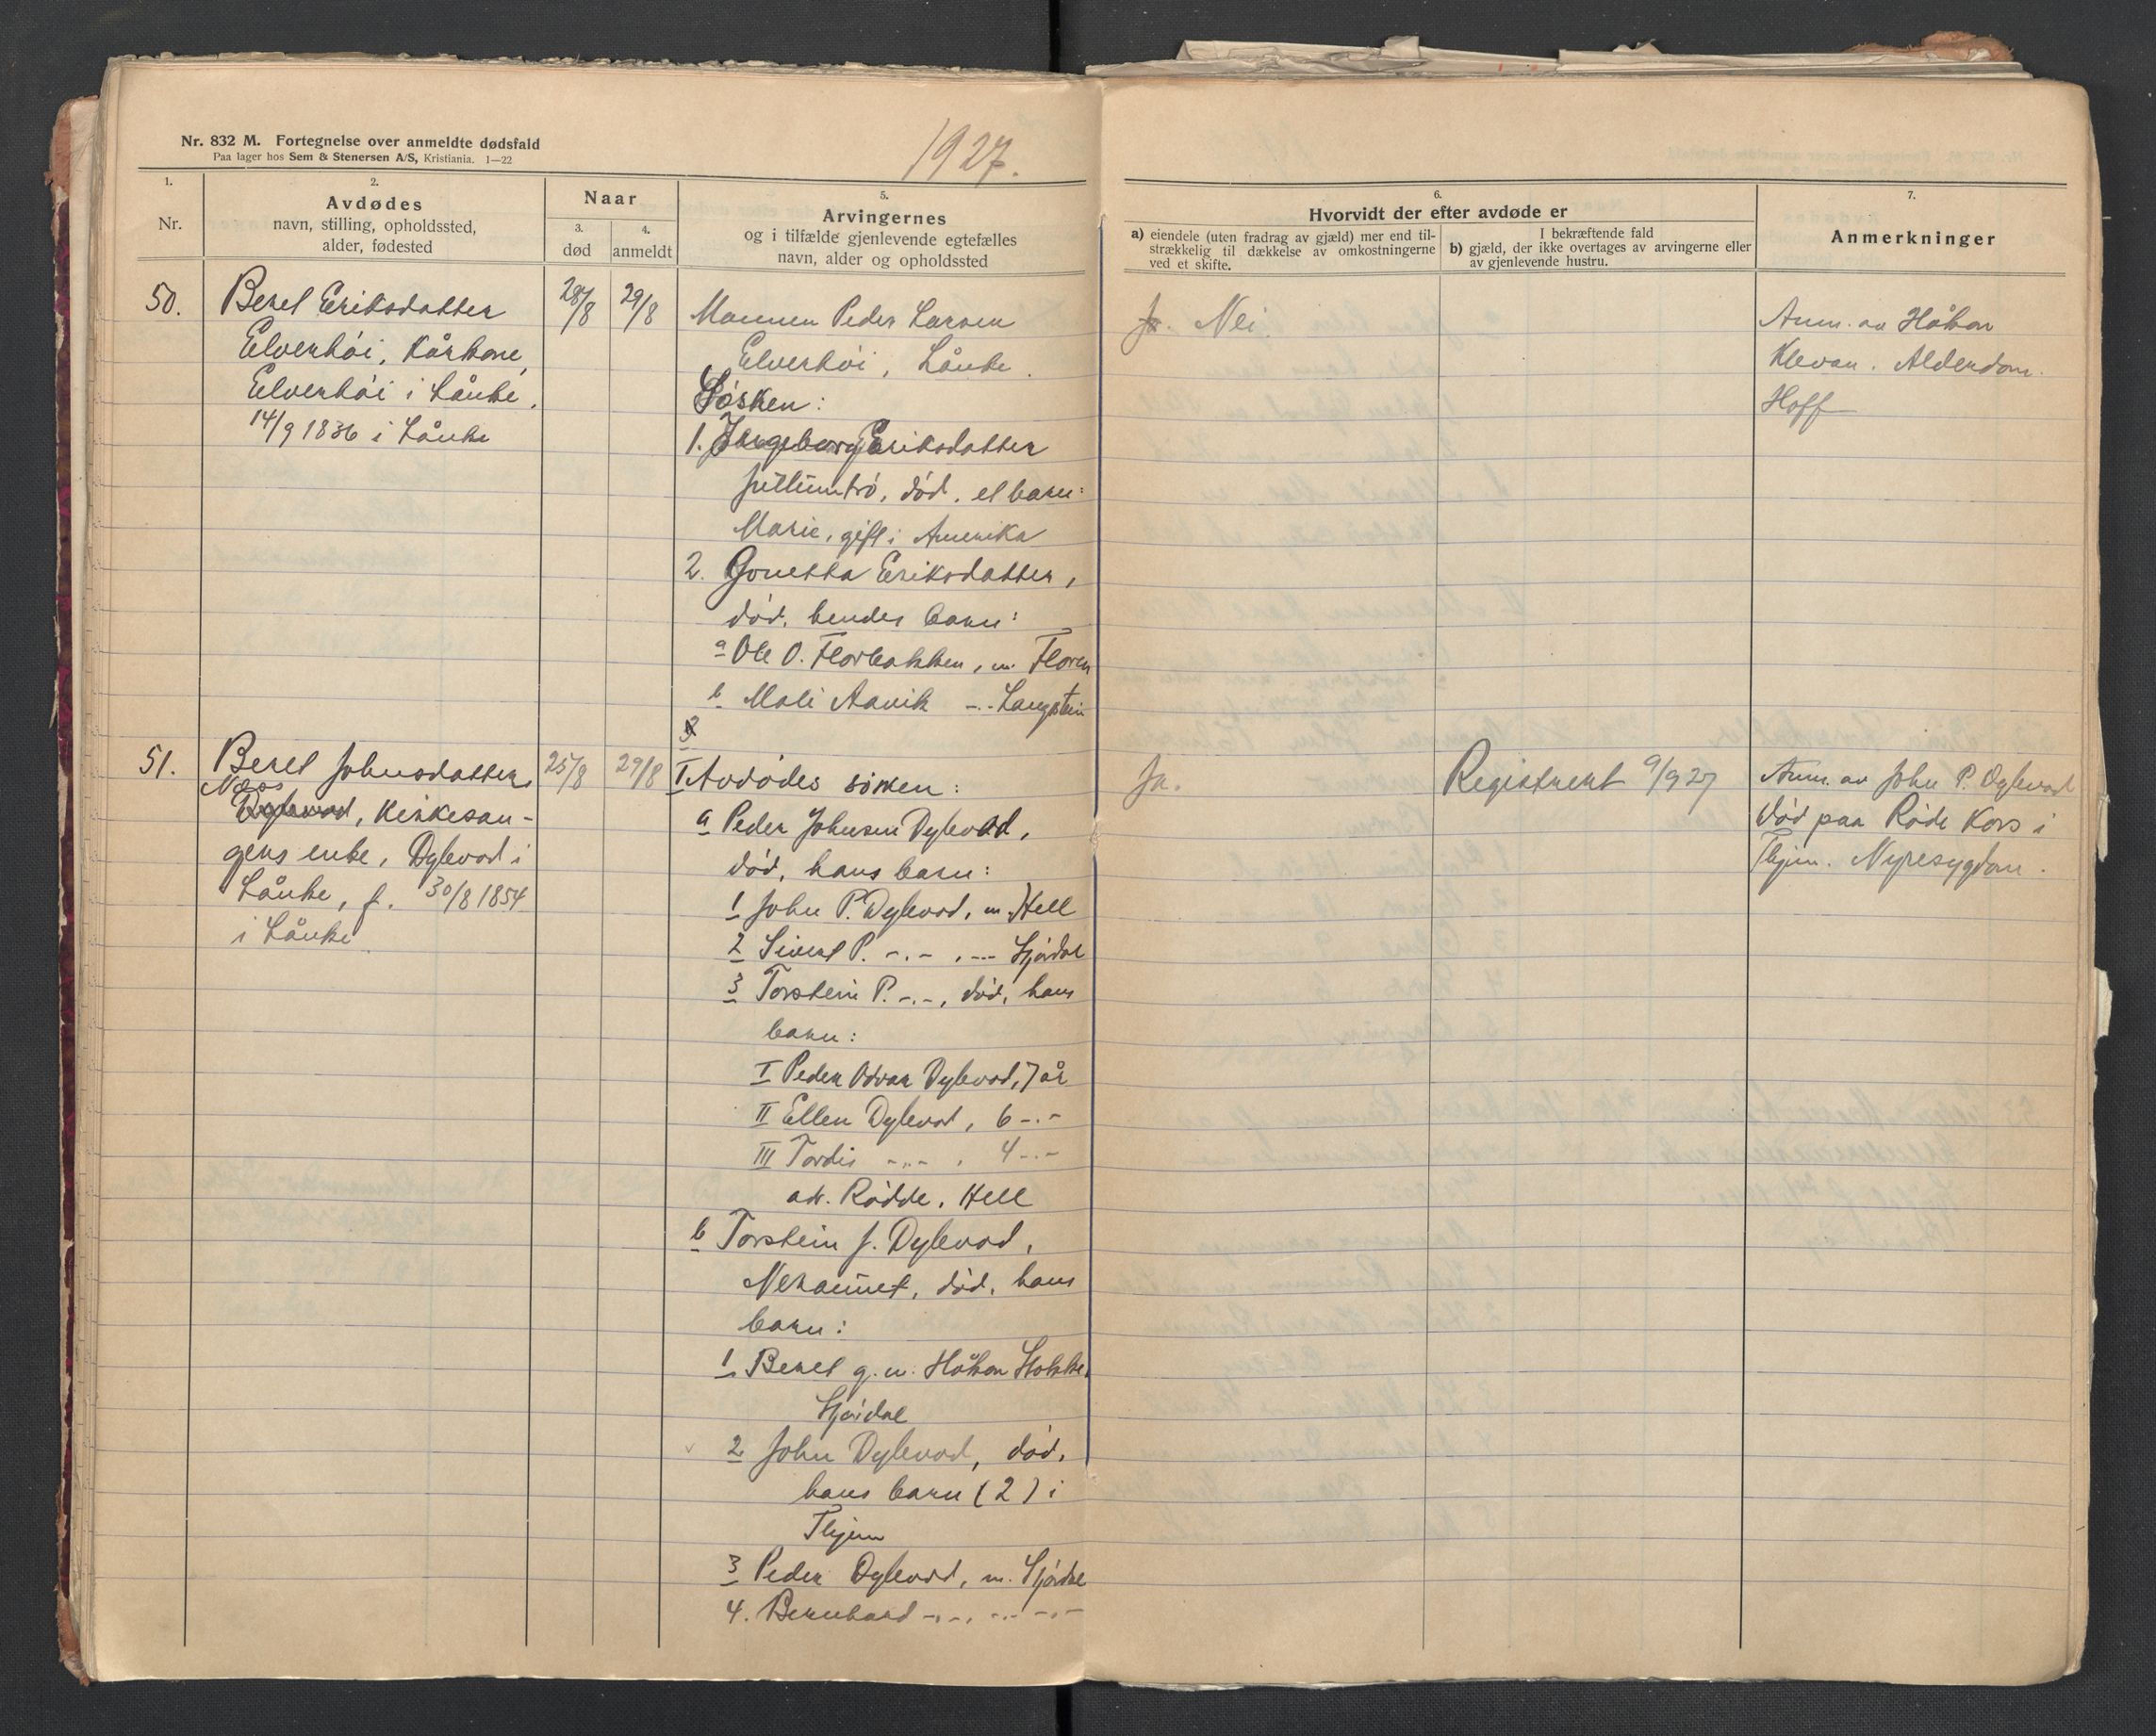 Nr. 832 M. Fortegnelse over anmeldte dødsfald
Paa lager hos Sem & Stenersen A/S, Kristiania. 1—22
1927.
1.
Nr.
2.
Avdødes
navn, stilling, opholdssted,
alder, fødested
Naar
3.
død
4.
anmeldt
5.
Arvingernes
og i tilfælde gjenlevende egtefælles
navn, alder og opholdssted
6.
Hvorvidt der efter avdøde er
a) eiendele (uten fradrag av gjæld) mer end til-
strækkelig til dækkelse av omkostningerne
ved et skifte.
I bekræftende fald
b) gjæld, der ikke overtages av arvingerne eller
av gjenlevende hustru.
7.
Anmerkninger
50.
Beret Eriksdatter
Elverhøi, Kårkone,
Elverhøi i Lånke,
14/9 1836 i Lånke
28/8
29/8
Mannen Peder Larsen
Elverhøi, Lånke.
Søsken:
1. Ingeborg Eriksdatter
død. et barn:
Marie, gift i Amerika
2. Gonetta Eriksdatter,
død. hendes barn:
a Ole O. Florbakken, m. Floren
b Mali Aavik -.- Langstein
3
Ja. Nei.
Anm. av Håkon
Klevan. Alderdom.
Hoff
51.
Beret Johnsdatter,
Næss
Dyblevad, Kirkesan-
gers enke, Dyblevad i
Lånke, f. 30/8 1854
i Lånke
25/8
29/8
I Avdødes søsken:
a Peder Johnsen Dyblevad,
død, hans barn:
1 John P. Dyblevad, m. Hell
2 Sivert P. -.- , -.- Stjørdal
3 Torstein P. -.-, død, hans
barn:
I Peder Odvar Dyblevad, 7 år
II Ellen Dyblevad, 6 -.-
III Tordis -.- , 4 -.-
adr. Rødde, Hell
b Torstein J. Dyblevad,
død, hans
barn:
1 Beret g. m. Håkon Stokke,
Stjørdal
2 John Dyblevad, død.
hans barn (2) i
Thjem
3 Peder Dyblevad, m. Stjørdal
4. Bernhard -.-, -.- -.-
Ja.
Registrert 9/9 27
Anm. av John P. Dyblevad
Død paa Røde Kors i
Thjem. Nyresygdom.